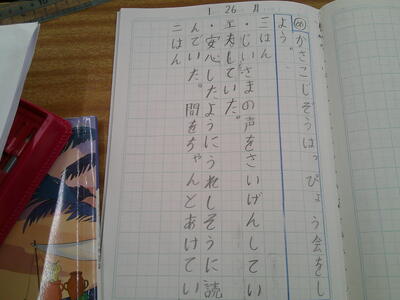 1 26 月
66 かさこじぞうはっぴょう会をし
よう。
三はん
・じいさまの声をさいげんしてい
工夫していた。
・安心したようにうれしそうに読
んでいた。間をちゃんとあけてい
二はん